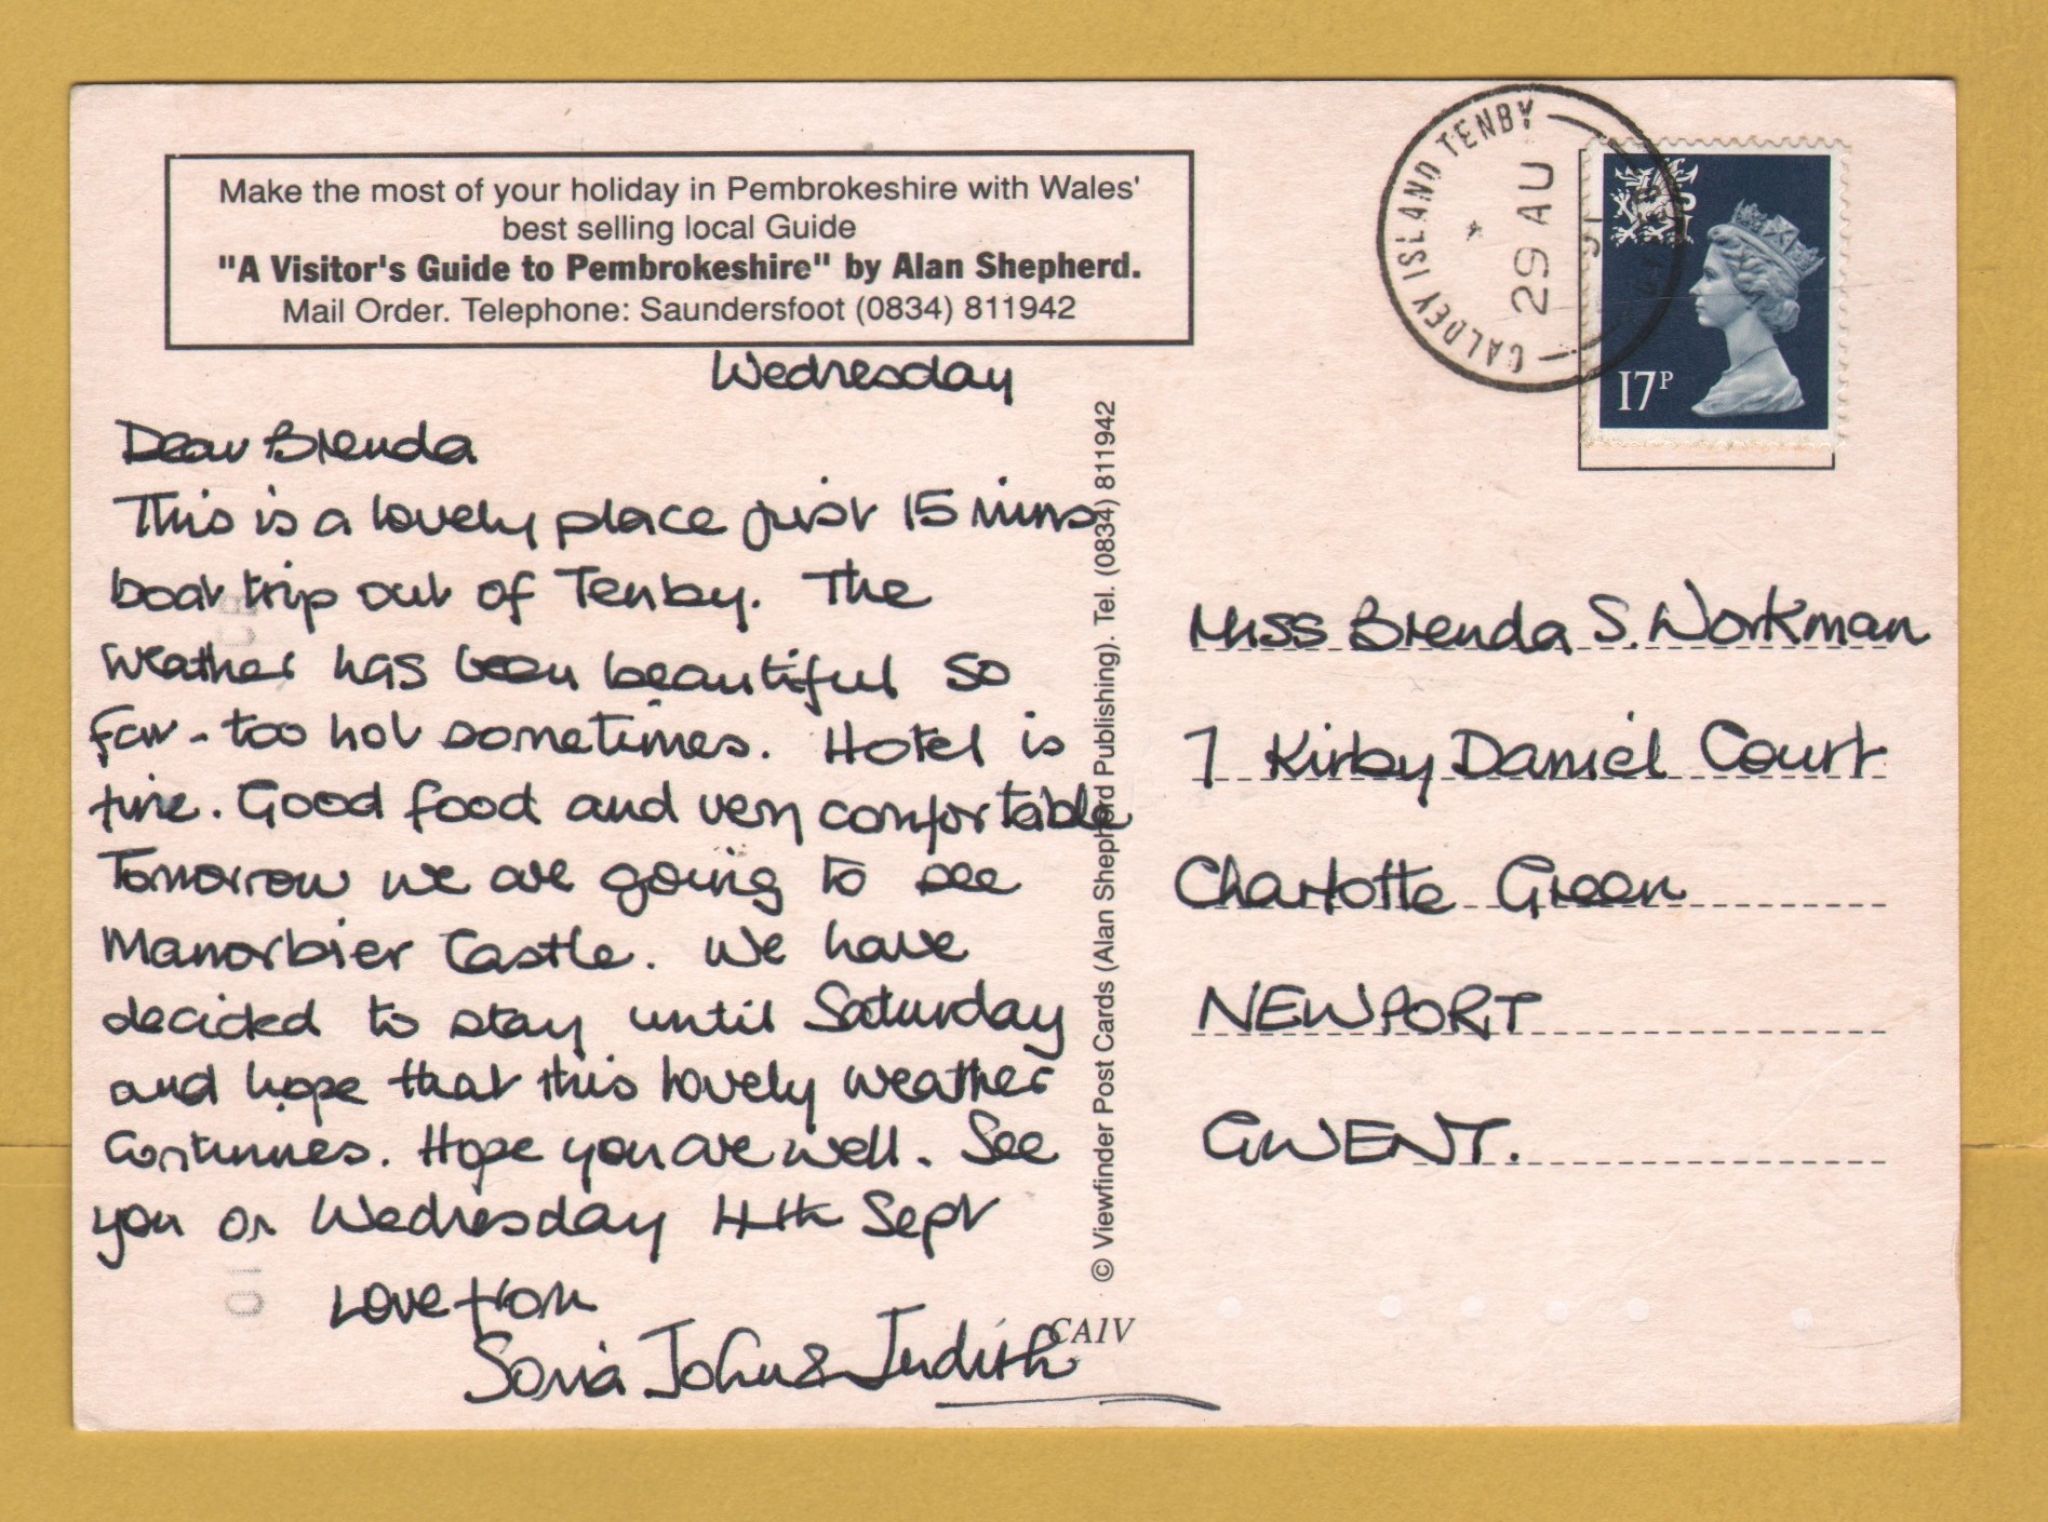 Make the most of your holiday in Pembrokeshire with Wales'
best selling local Guide
"A Visitor's Guide to Pembrokeshire" by Alan Shepherd.
Mail Order. Telephone: Saundersfoot (0834) 811942
Wednesday
Dear Brenda
This is a lovely place just 15 mins
boat trip out of Tenby. The
weather has been beautiful so
far - too hot sometimes. Hotel is
fine. Good food and very comfortable
Tomorrow we are going to see
Manorbier Castle. We have
decided to stay until Saturday
and hope that this lovely weather
continues. Hope you are well. See
you on Wednesday 4th Sept
Love from
Sonia John & Judith
CAIV
© Viewfinder Post Cards (Alan Shepherd Publishing). Tel. (0834) 811942
CALDEY ISLAND TENBY
29 AU
91
17P
Miss Brenda S. Workman
7 Kirby Daniel Court
Charlotte Green
NEWPORT
GWENT.